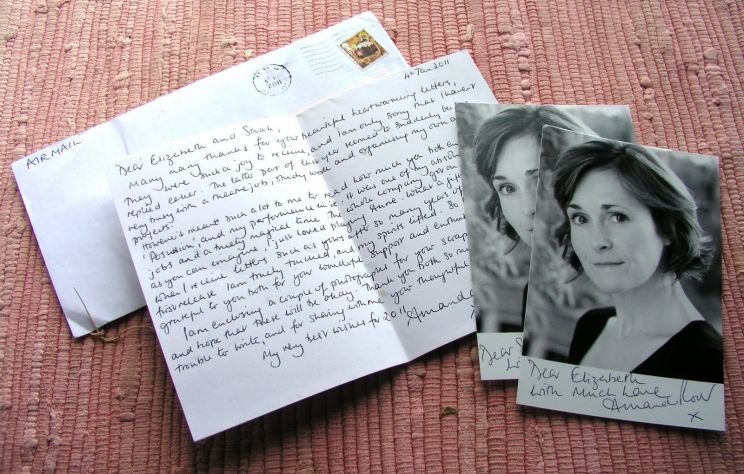 AIR MAIL
2011
4th Jan 2011
Dear Elizabeth and Sarah,
Many many thanks for your beautiful heartwarming letters,
They were such a joy to receive and I am only sorry that I haven't
replied earlier. The latter part of last year seemed to suddenly be
very busy with a theatre job, study work and organising my own
projects.
However it meant such a lot to me to read how much you both
'Persuasion', and my performance in it. It was one of my
jobs and a truly magical time. The whole company got on
as you can imagine, I just loved playing Anne. What a
when I receive letters such as yours after so many years
first release I am truly touched and my spirits lifted. So
grateful to you both for your wonderful support and
I am enclosing a couple of photographs for your
and hope that these will be okay. Thank you both so
trouble to write, and for sharing with me your thoughtful
My very best wishes for 2011
Amanda
Dear
Dear Elizabeth
With Much Love
Amanda Root
x